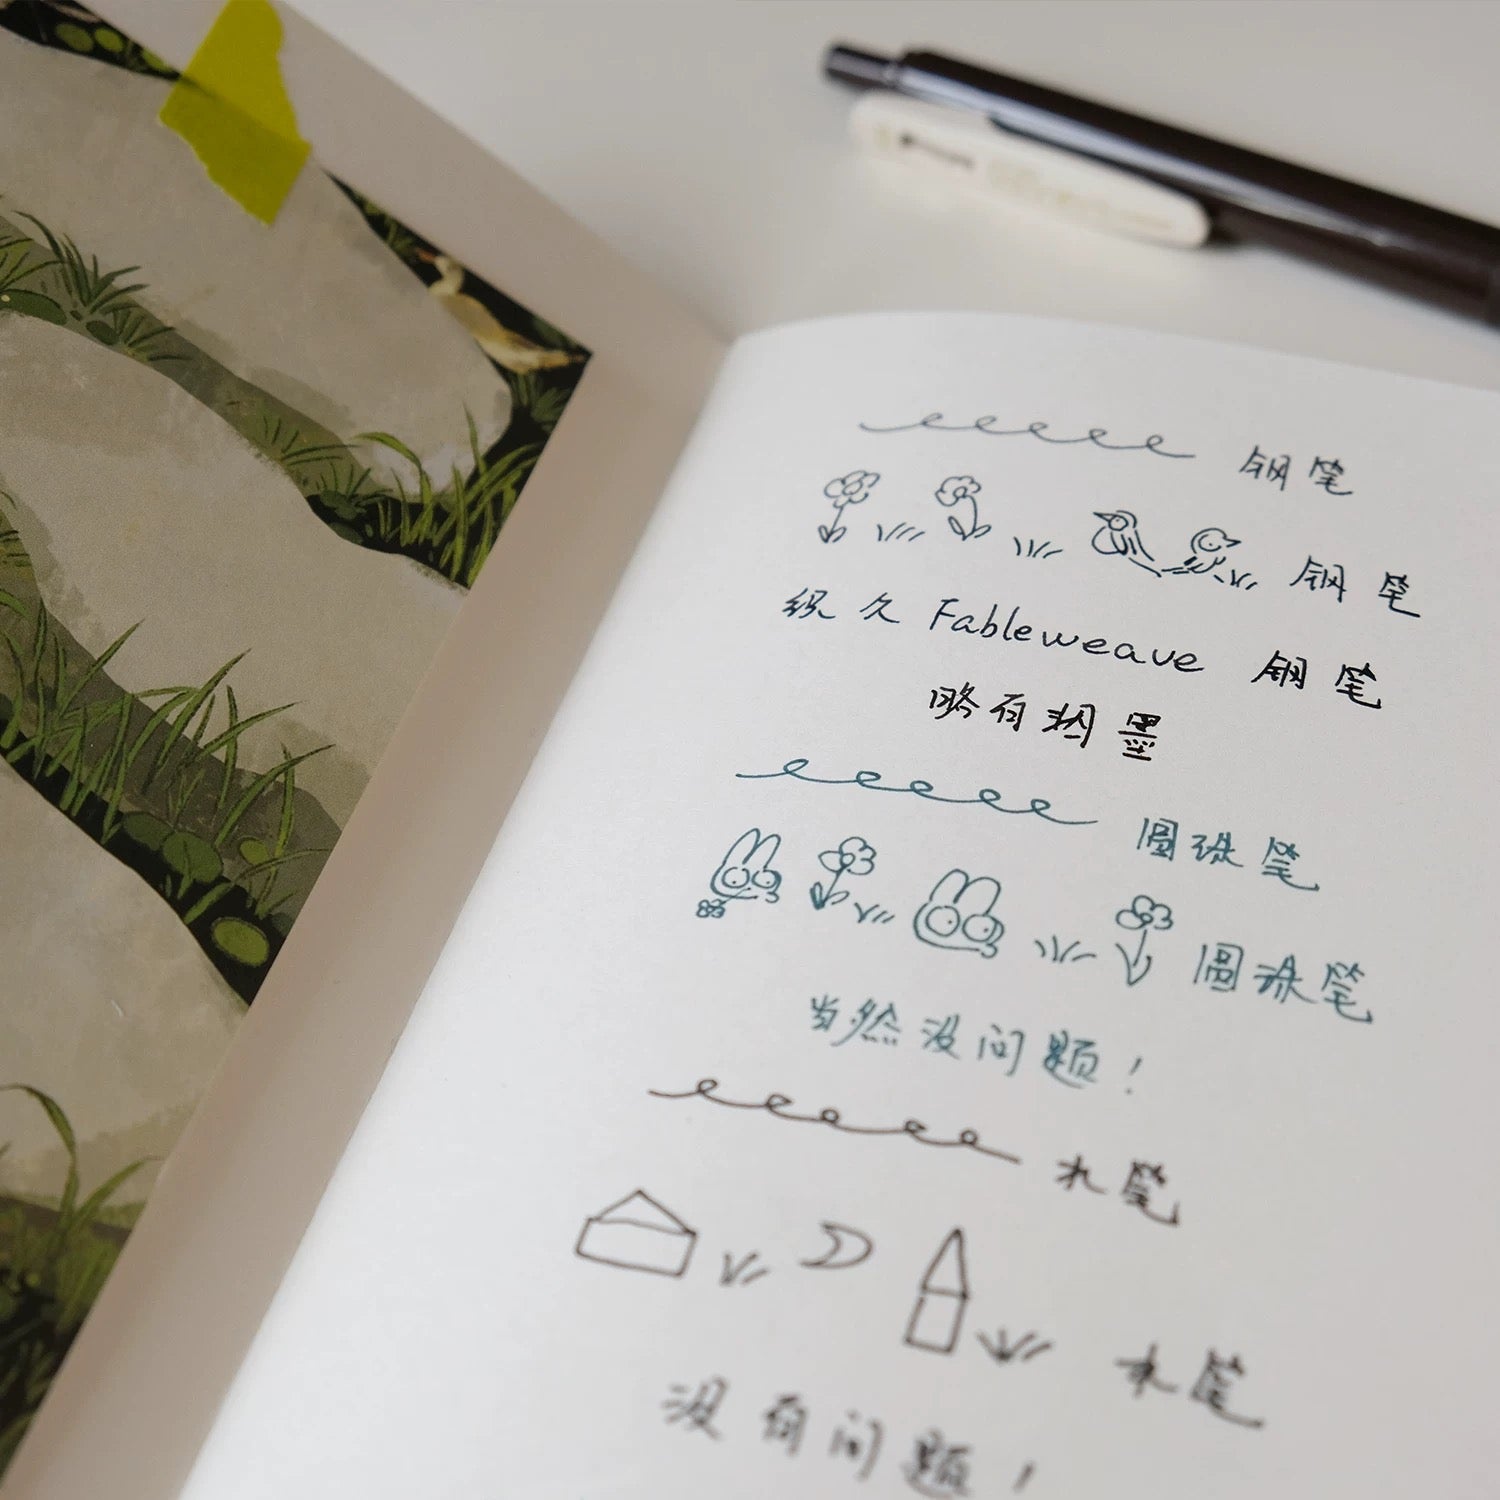 钢笔
钢笔
织久 Fableweave 钢笔
略有洇墨
圆珠笔
圆珠笔
当然没问题！
水笔
水笔
没有问题！